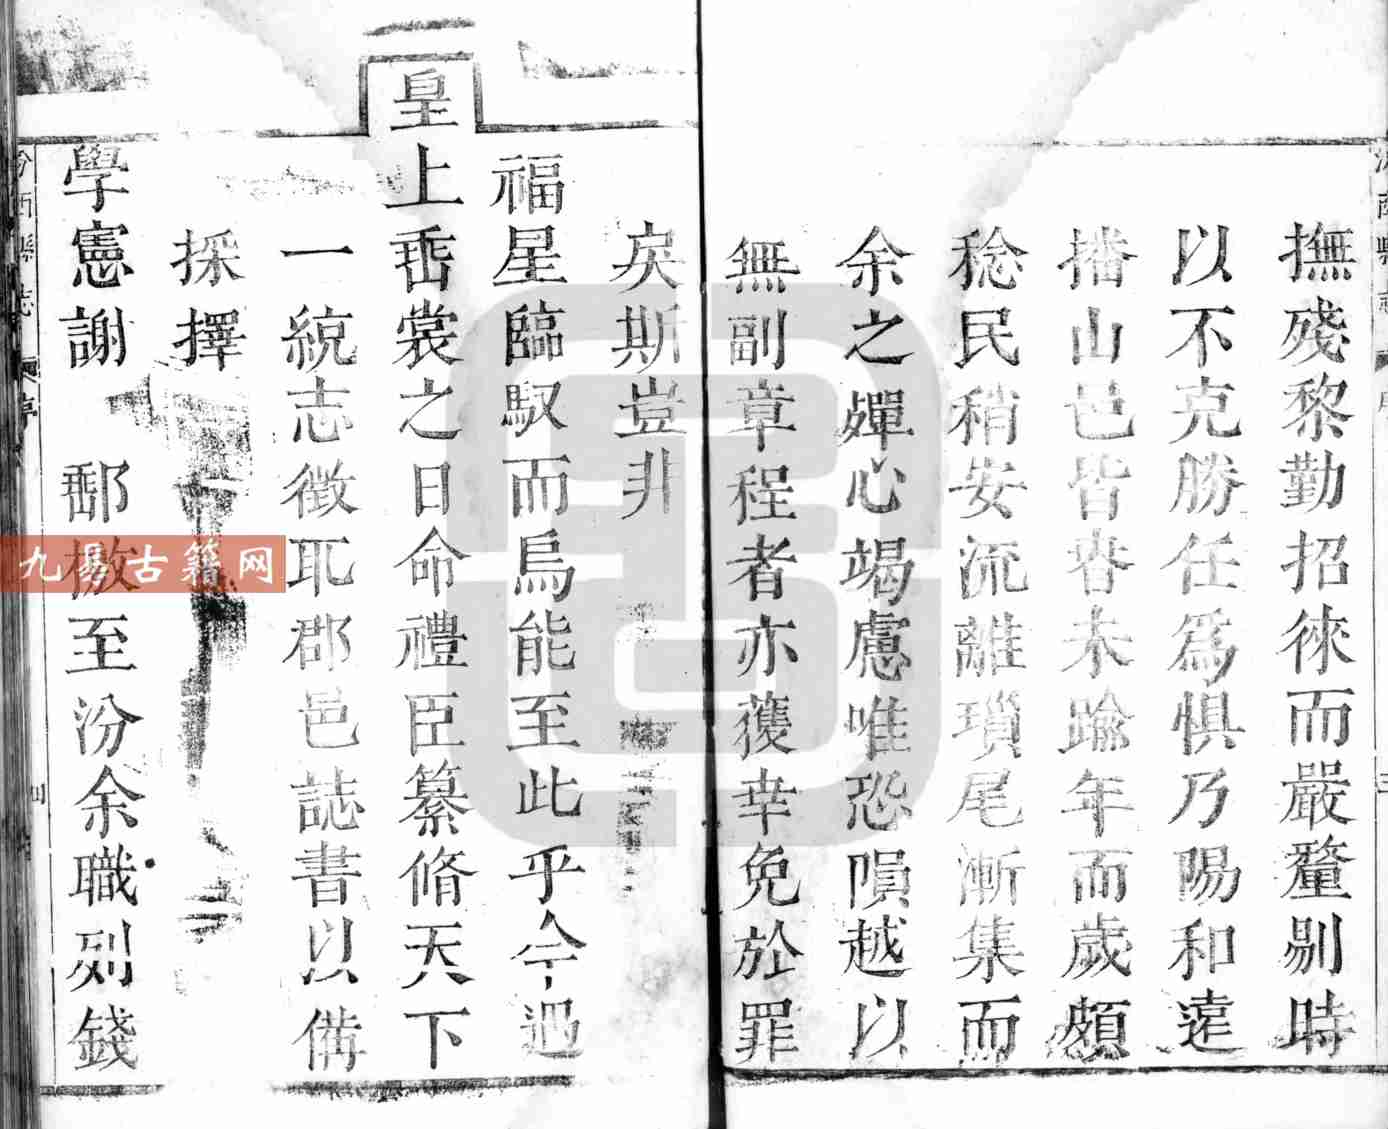 撫殘黎勤招徠而嚴釐剔時
以不克勝任爲惧乃陽和遠
播山邑皆春未踰年而歲頗
稔民稍安流離瑣尾漸集而
余之殫心竭慮唯恐隕越以
無副章程者亦獲幸免於罪
戾斯豈非
福星臨馭而烏能至此乎今遇
皇上垂裳之日命禮臣纂脩天下
一統志徵取郡邑誌書以備
採擇
學憲謝 郵檄至汾余職列錢
汾西縣志
序
四
九易古籍网